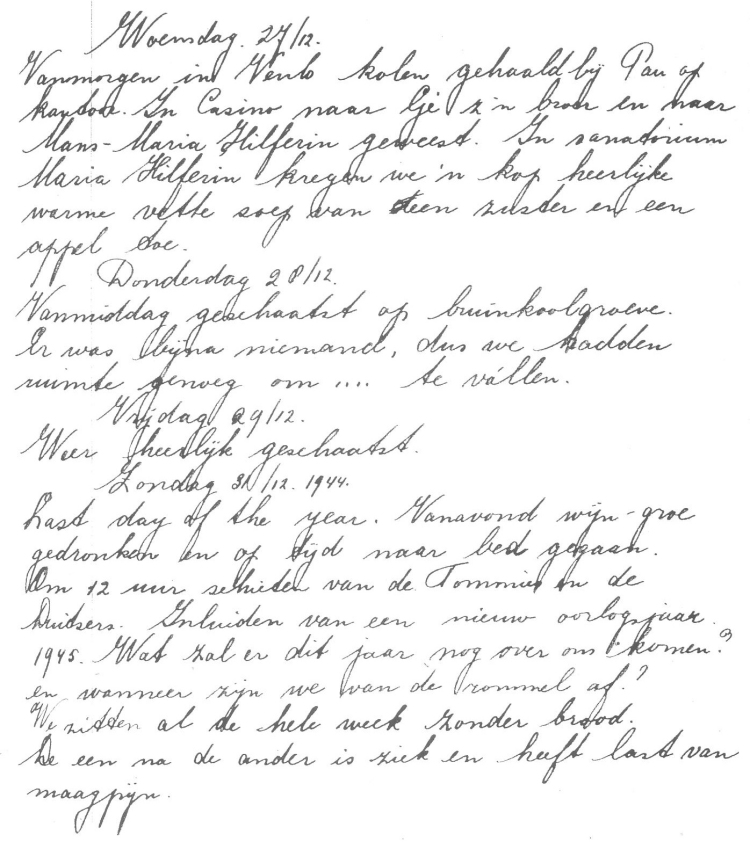 Woensdag. 27/12.
Vanmorgen in Venlo kolen gehaald bij Pau op
kantoor. In Casino naar Gé z'n broer en naar
Mans-Maria Hilferin geweest. In sanatorium
Maria Hilferin kregen we 'n kop heerlijke
warme vette soep van een zuster en een
appel toe.
Donderdag 28/12.
Vanmiddag geschaatst op bruinkoolgroeve.
Er was bijna niemand, dus we hadden
ruimte genoeg om .... te vállen.
Vrijdag 29/12.
Weer heerlijk geschaatst.
Zondag 31/12. 1944.
Last day of the year. Vanavond wijn-groc
gedronken en op tijd naar bed gegaan.
Om 12 uur schieten van de Tommies en de
Duitsers. Inluiden van een nieuw oorlogsjaar
1945. Wat zal er dit jaar nog over ons komen?
en wanneer zijn we van de rommel af?
We zitten al de hele week zonder brood.
De een na de ander is ziek en heeft last van
maagpijn.